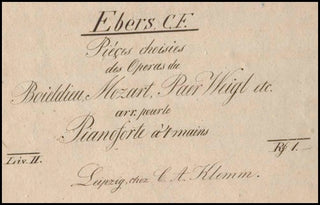 Ebers, C.F.
Piéçes choisies
des Operas du
Boieldieu, Mozart, Paer, Weigl etc.
arr. pour le
Pianoforte à 4 mains
Liv. II.
Leipzig, chez C. A. Klemm.